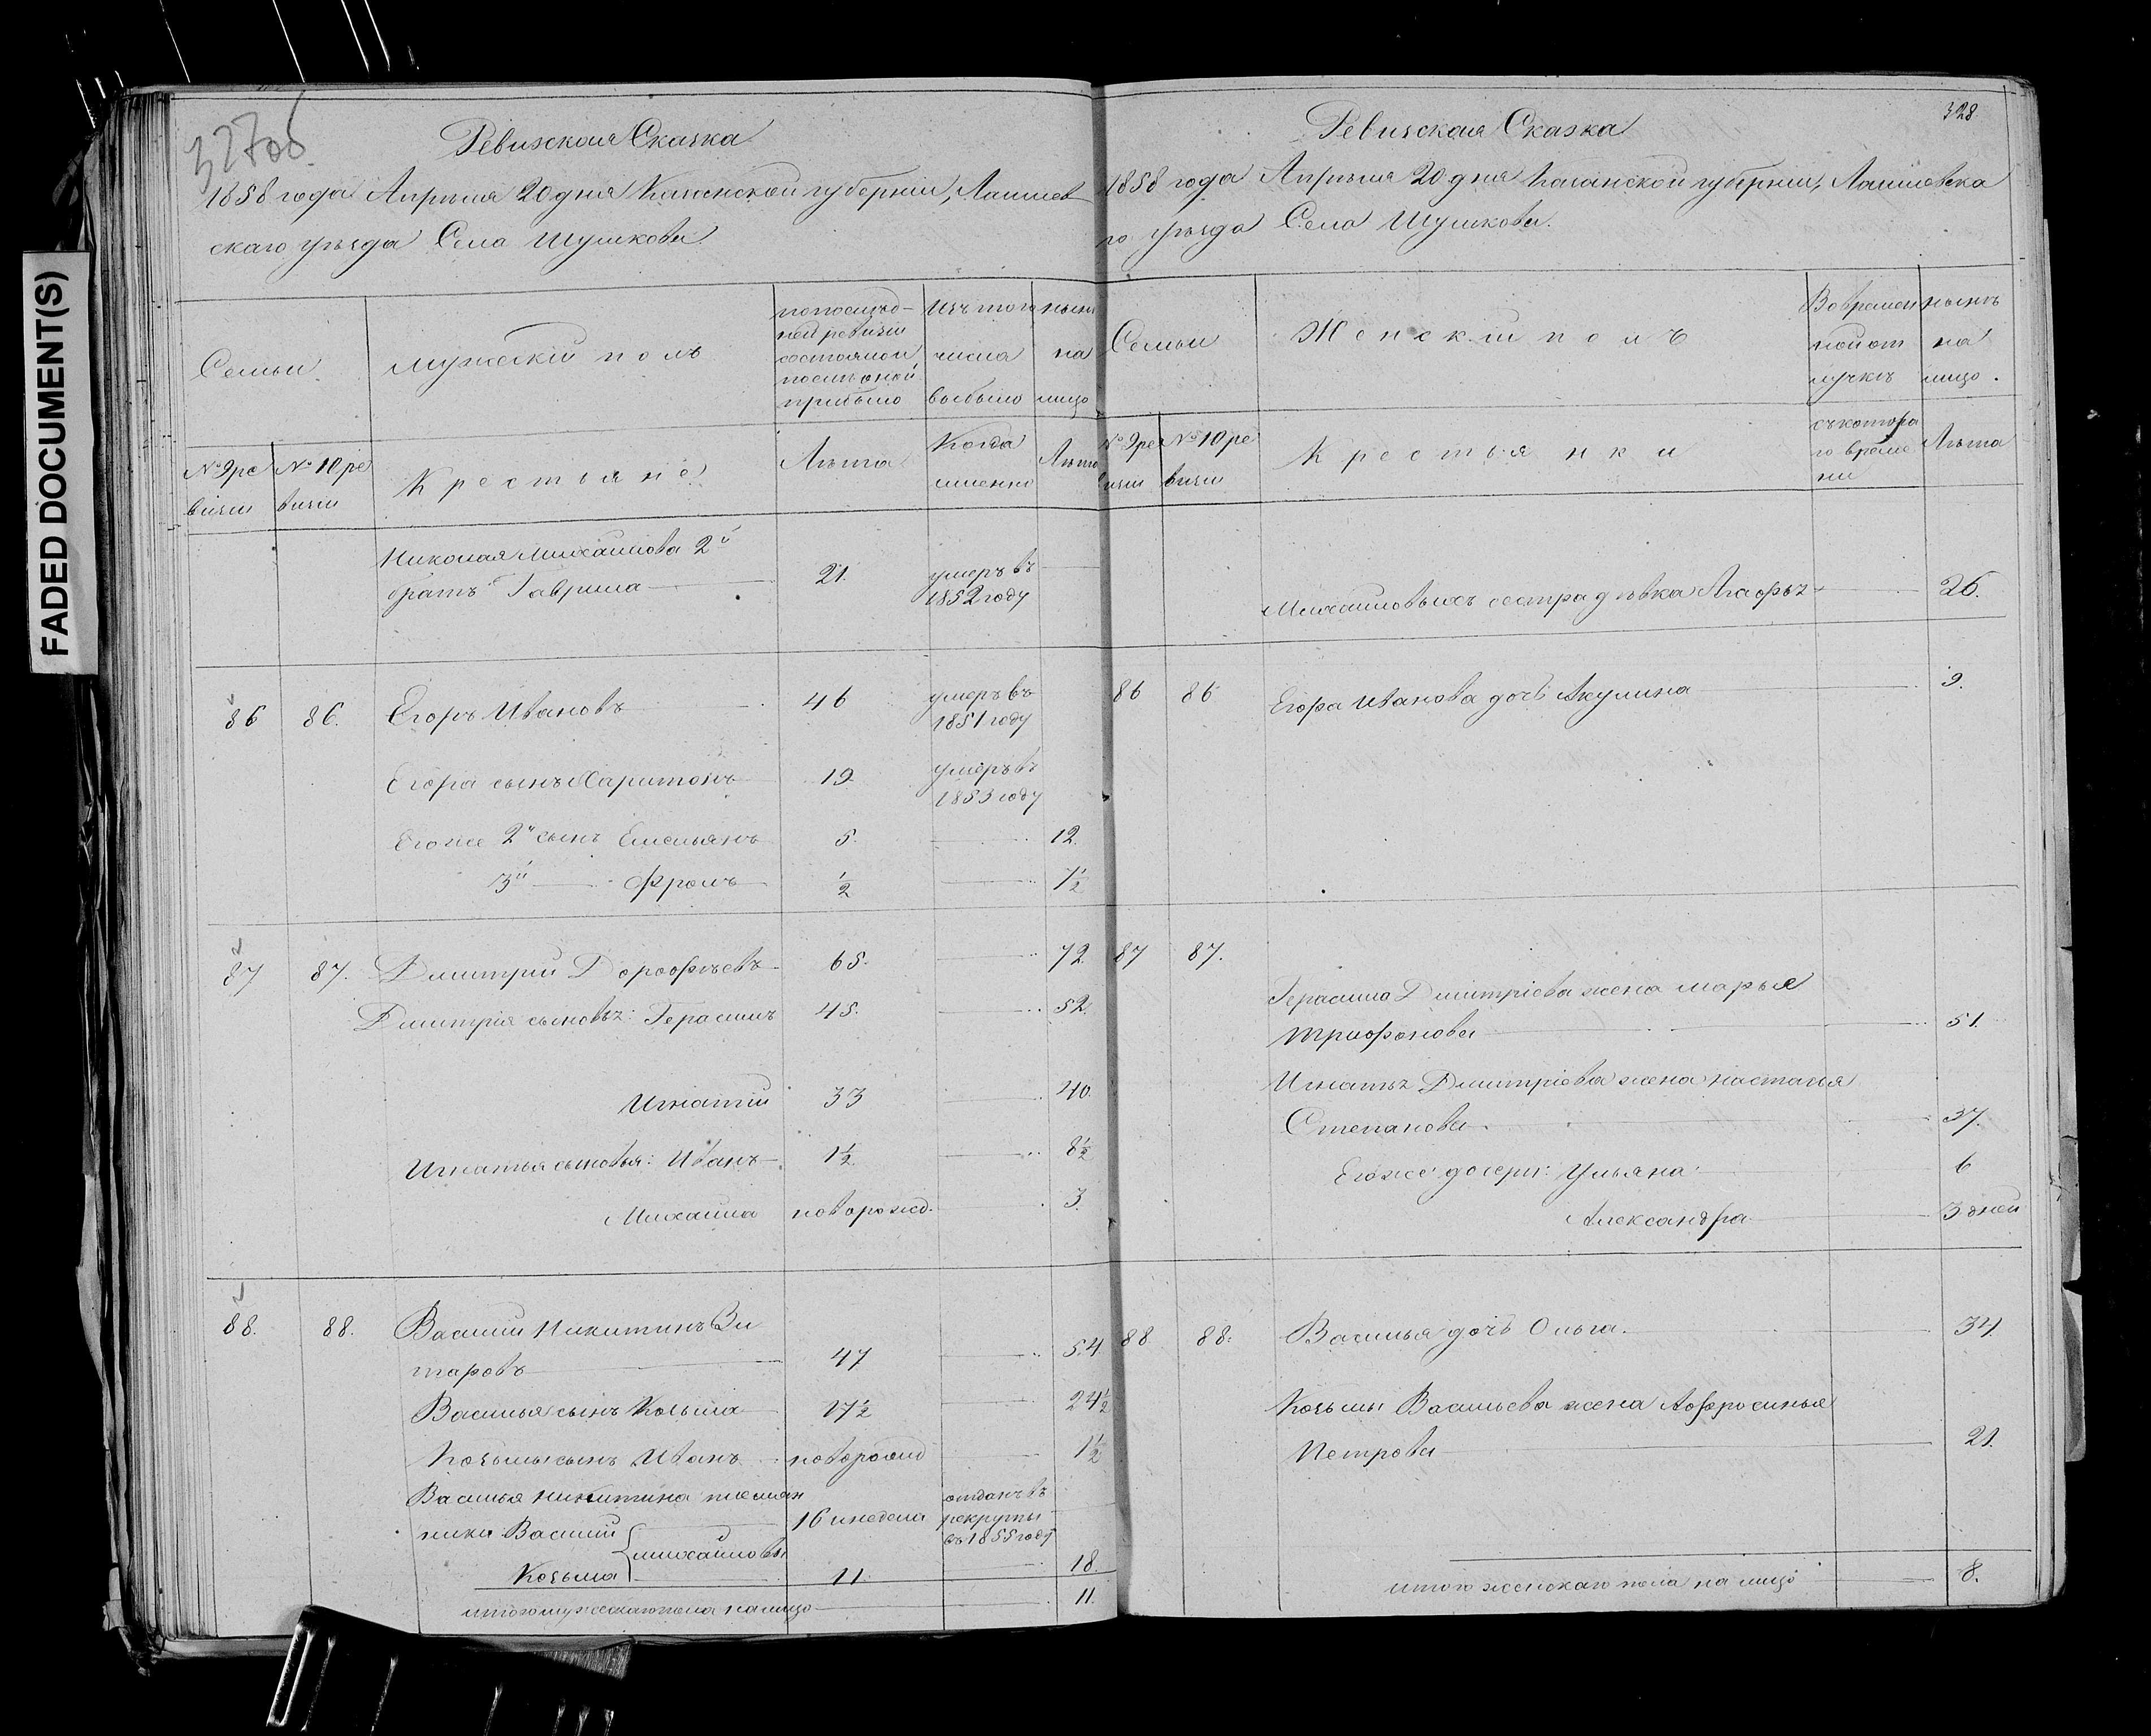 FADED DOCUMENT(S)
327об
Ревизская Сказка
1858 года Апрѣля 20 дня Казанской губерніи, Лаишев
скаго уѣзда Села Шушкова.
Семьи
мужескій полъ
по послѣд-
ней ревизіи
состояло и
послѣ оной
прибыло
Изъ того
числа
выбыло
нынѣ
на
лицо
№ 9 ре
визіи
№ 10 ре
визіи
Крестьяне
Лѣта
Когда
именно
Лѣта
Николая Михайлова 2й
братъ Гаврила 21. умеръ въ
1852 году
86 86. Егоръ Ивановъ 46 умеръ въ
1851 году
Егора сынъ Харитонъ 19. умеръ въ
1853 году
Его же 2й сынъ Емельянъ 5. 12.
3й Фролъ ½ 7½
87 87. Дмитрій Дорофѣевъ 65. 72.
Дмитрія сыновья: Герасимъ 45. 52.
Игнатій 33 40.
Игнатья сыновья: Иванъ 1½ 8½
Михаила новорожд. 3.
88. 88. Василій Никитинъ Зи
таровъ 47 54
Василья сынъ Козьма 17½ 24½
Козьмы сынъ Иванъ новорожд 1½
Василья Никитина племян
ники Василій 16 и неделя отданъ въ
рекруты
въ 1855 году
Михайловы
Козьма 11. 18.
итого мужескаго пола на лицо 11.
328
Ревизская Сказка
1858 года Апрѣля 20 дня Казанской губерніи, Лаишевска
го уѣзда Села Шушкова.
Семьи
Женскій полъ
Во времен
ной от
лучкѣ
нынѣ
на
лицо.
№ 9 ре
визіи
№ 10 ре
визіи
Крестьянки
съ котора
го време
ни
Лѣта
Михайловыхъ сестра дѣвка Агафья 26.
86 86 Егора Иванова дочь Акулина 9.
87 87.
Герасима Дмитріева жена Марья
Трифонова 51.
Игнатья Дмитріева жена Настасья
Степанова 37.
Его же дочери: Ульяна 6
Александра 3 дней
88 88. Василья дочь Ольга. 34.
Козьмы Васильева жена Афросинья
Петрова 21.
итого женскаго пола на лицо 8.